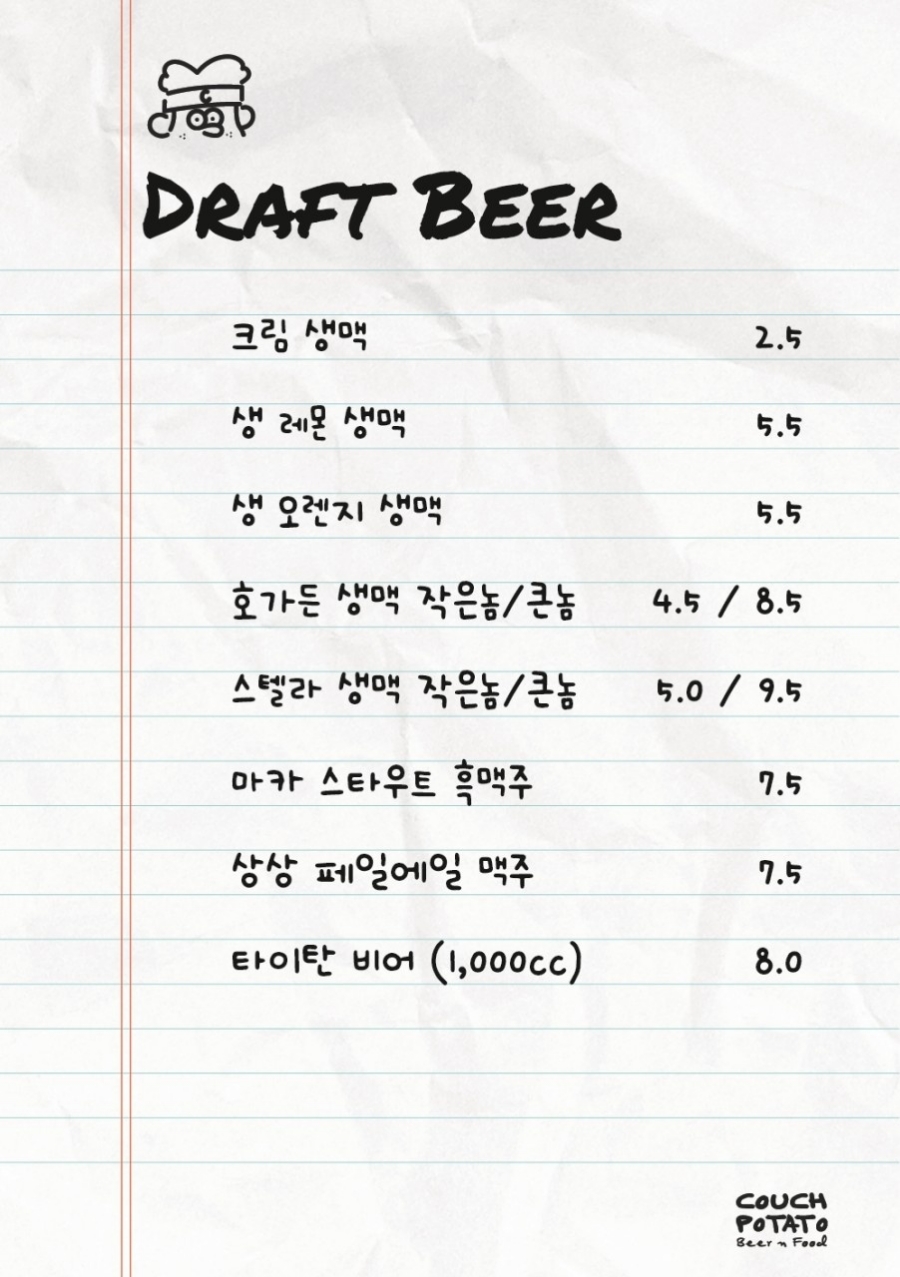 DRAFT BEER
크림 생맥 2.5
생 레몬 생맥 5.5
생 오렌지 생맥 5.5
호가든 생맥 작은놈/큰놈 4.5 / 8.5
스텔라 생맥 작은놈/큰놈 5.0 / 9.5
마카 스타우트 흑맥주 7.5
상상 페일에일 맥주 7.5
타이탄 비어 (1,000cc) 8.0
COUCH
POTATO
Beer n Food